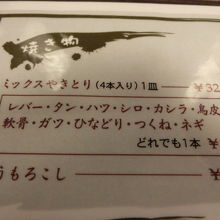 焼き物
ミックスやきとり(4本入り)1皿 ¥32
レバー・タン・ハツ・シロ・カシラ・鳥皮
軟骨・ガツ・ひなどり・つくね・ネギ
どれでも1本 ¥
うもろこし ¥